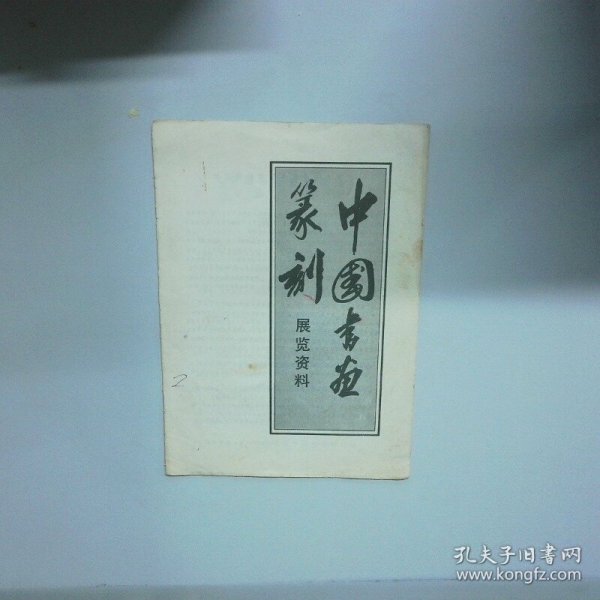 中国书画
篆刻
展览资料
2
孔夫子旧书网
www.kongfz.com